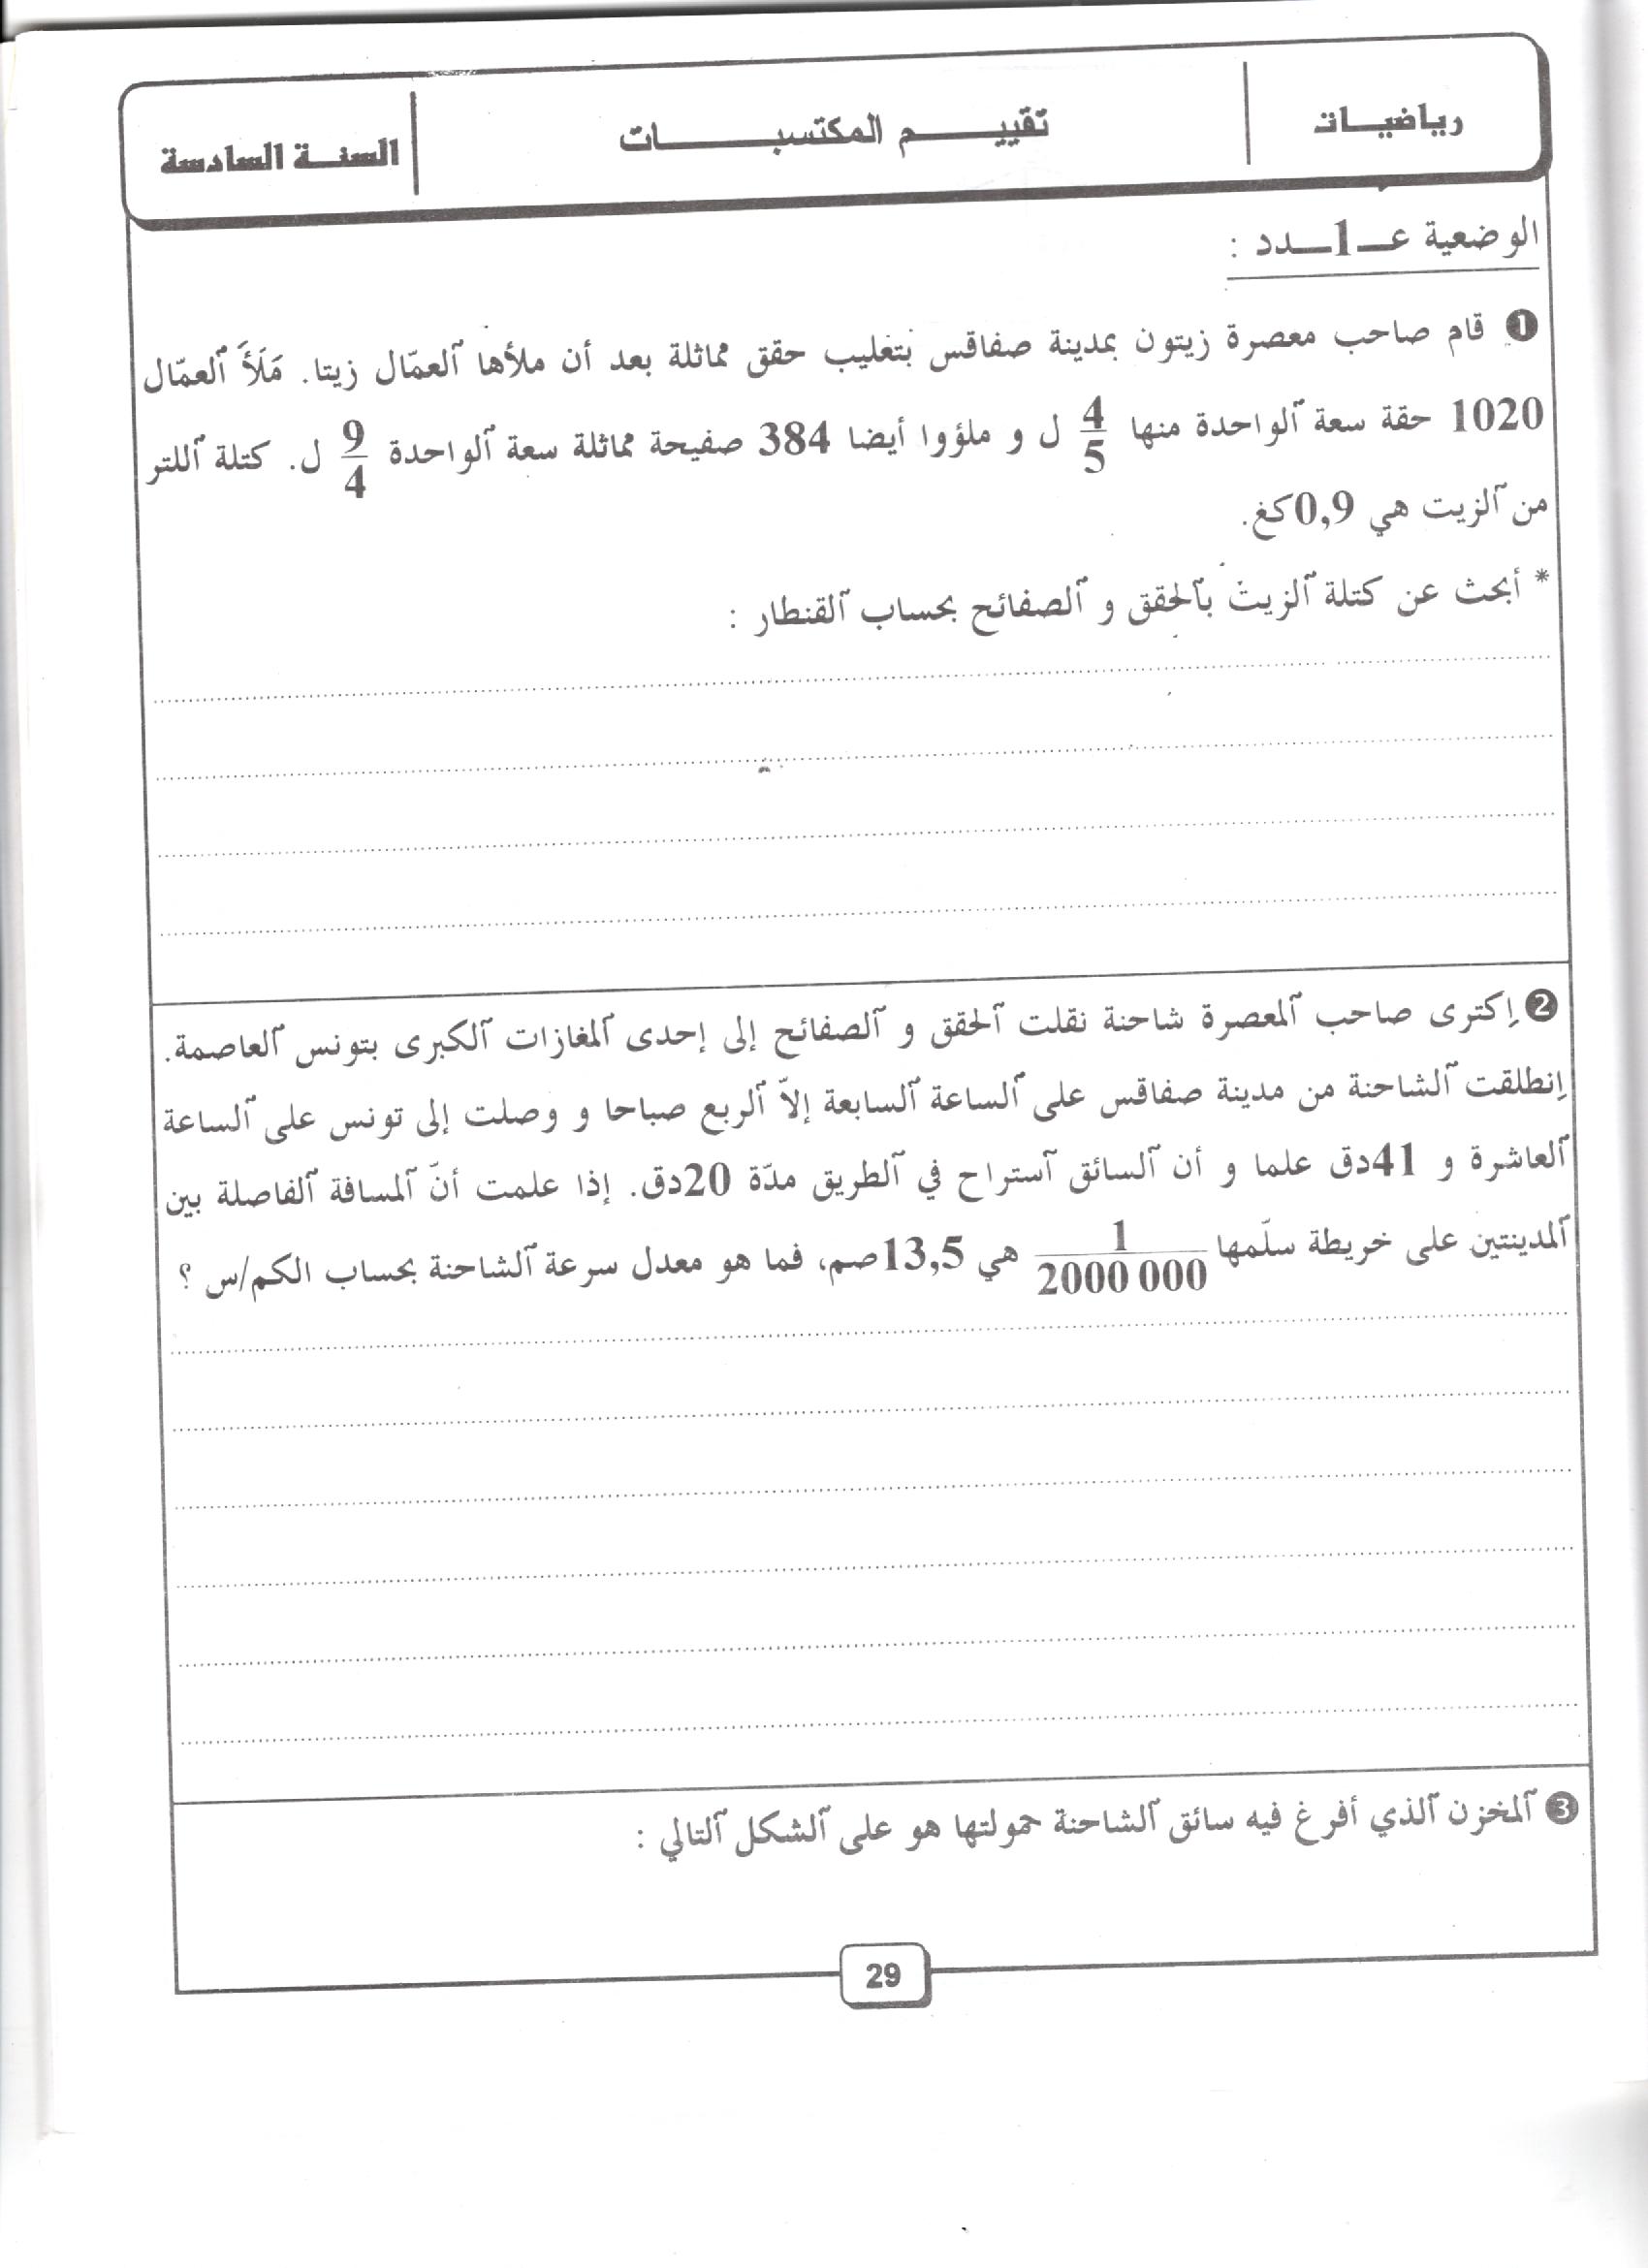 رياضيات
تقييم المكتسبات
السنة السادسة
الوضعية عـ1ـدد :
❶ قام صاحب معصرة زيتون بمدينة صفاقس بتعليب حقق مماثلة بعد أن ملأها ٱلعمّال زيتا. مَلَأَ ٱلعمّال
1020 حقة سعة ٱلواحدة منها 4/5 ل و ملؤوا أيضا 384 صفيحة مماثلة سعة ٱلواحدة 9/4 ل. كتلة ٱللتر
من ٱلزيت هي 0,9كغ.
* أبحث عن كتلة ٱلزيت بٱلحقق و ٱلصفائح بحساب ٱلقنطار :
❷ إكترى صاحب ٱلمعصرة شاحنة نقلت ٱلحقق و ٱلصفائح إلى إحدى ٱلمغازات ٱلكبرى بتونس ٱلعاصمة.
إنطلقت ٱلشاحنة من مدينة صفاقس على ٱلساعة ٱلسابعة إلاّ ٱلربع صباحا و وصلت إلى تونس على ٱلساعة
ٱلعاشرة و 41دق علما و أن ٱلسائق ٱستراح في ٱلطريق مدّة 20دق. إذا علمت أنّ ٱلمسافة ٱلفاصلة بين
ٱلمدينتين على خريطة سلّمها 1/2000 000 هي 13,5صم، فما هو معدل سرعة ٱلشاحنة بحساب الكم/س ؟
❸ ٱلمخزن ٱلذي أفرغ فيه سائق ٱلشاحنة حمولتها هو على ٱلشكل ٱلتالي :
29